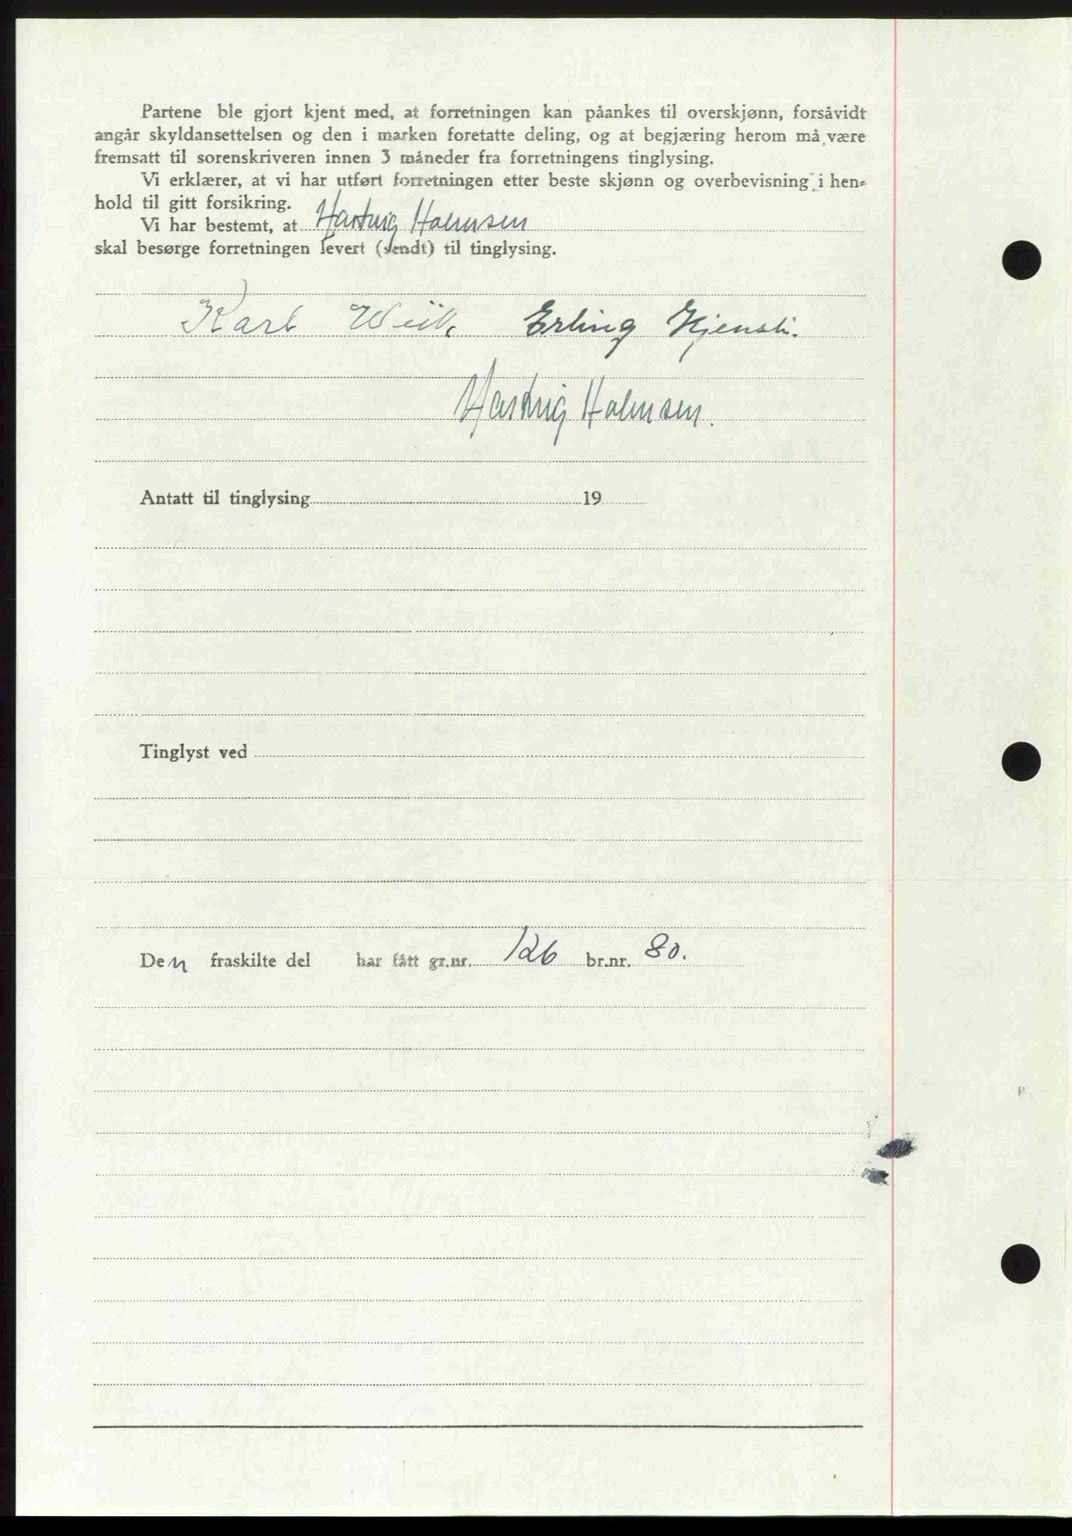 Partene ble gjort kjent med, at forretningen kan påankes til overskjønn, forsåvidt
angår skyldansettelsen og den i marken foretatte deling, og at begjæring herom må være
fremsatt til sorenskriveren innen 3 måneder fra forretningens tinglysing.
Vi erklærer, at vi har utført forretningen etter beste skjønn og overbevisning i hen-
hold til gitt forsikring.
Vi har bestemt, at Hartvig Holmsen
skal besørge forretningen levert (sendt) til tinglysing.
Karl Weik Erling
Hartvig Holmsen.
Antatt til tinglysing 19
Tinglyst ved
Den fraskilte del har fått gr.nr. 126 br.nr. 80.